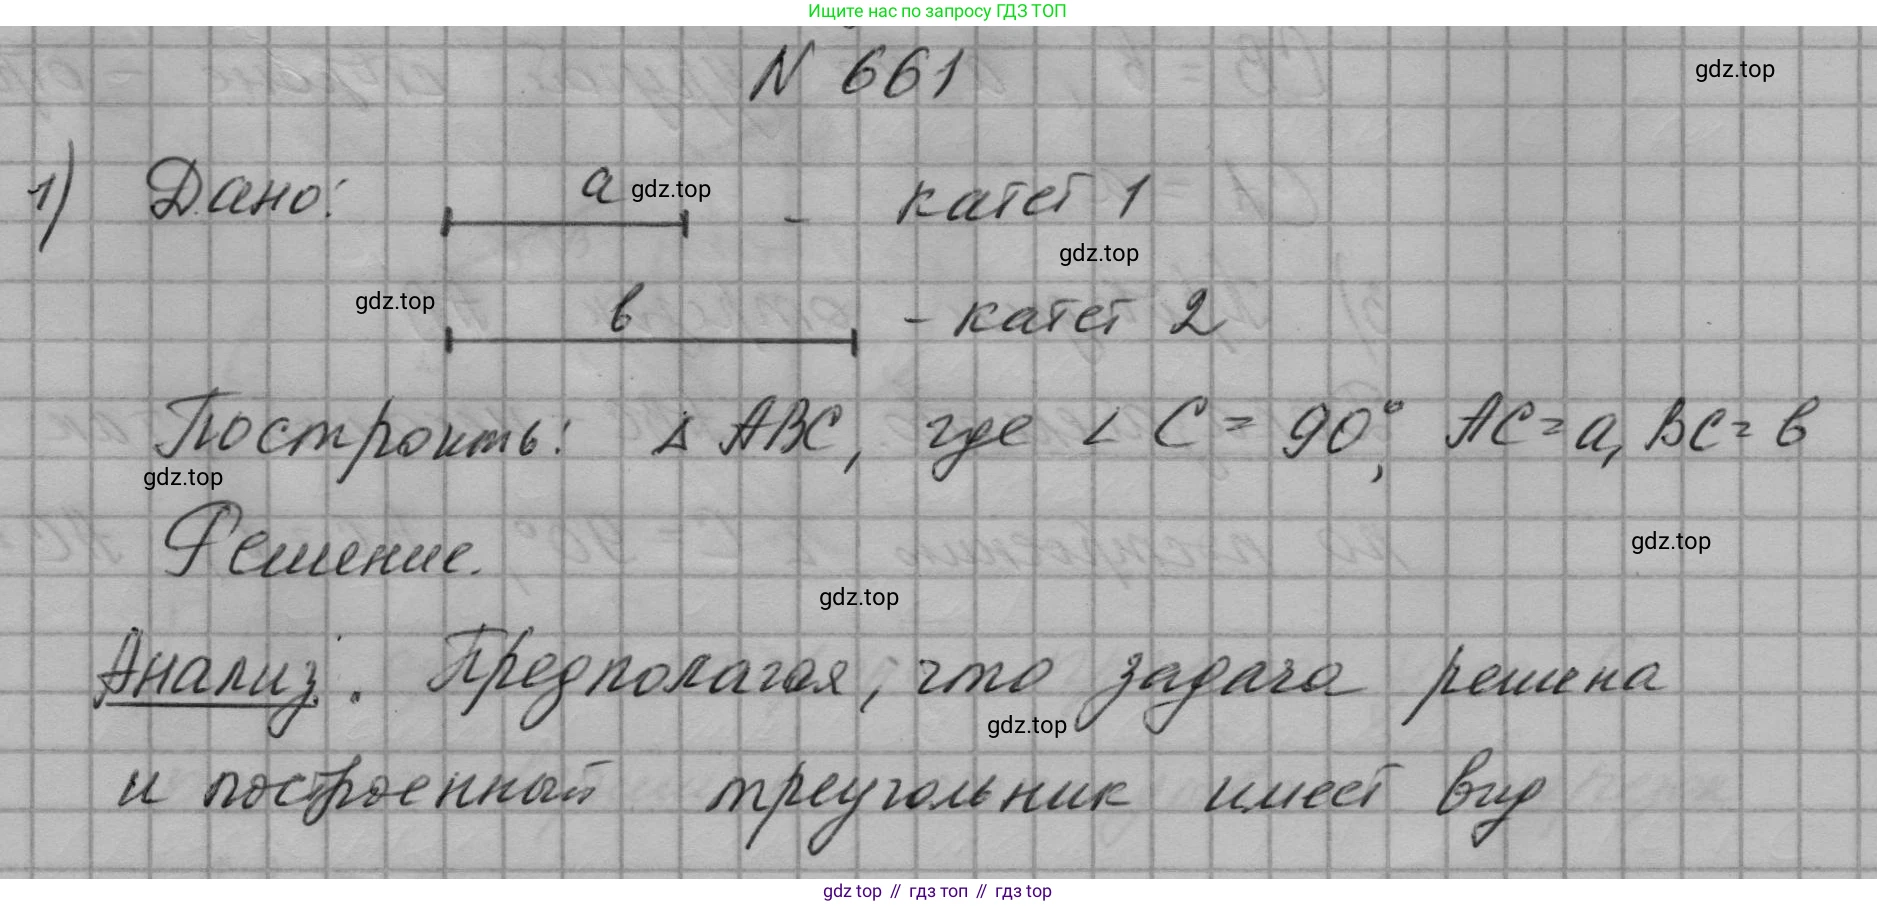 Ищите нас по запросу ГДЗ ТОП
N 661
gdz.top
1) Дано: a gdz.top - катет 1
gdz.top
gdz.top в - катет 2
Построить: Δ ABC, где ∠ C = 90°, AC = a, BC = в
gdz.top
Решение.
gdz.top
gdz.top
Анализ. Предполагая, что задача решена
gdz.top
и построенный треугольник имеет вид
gdz top // гдз топ // гдз top